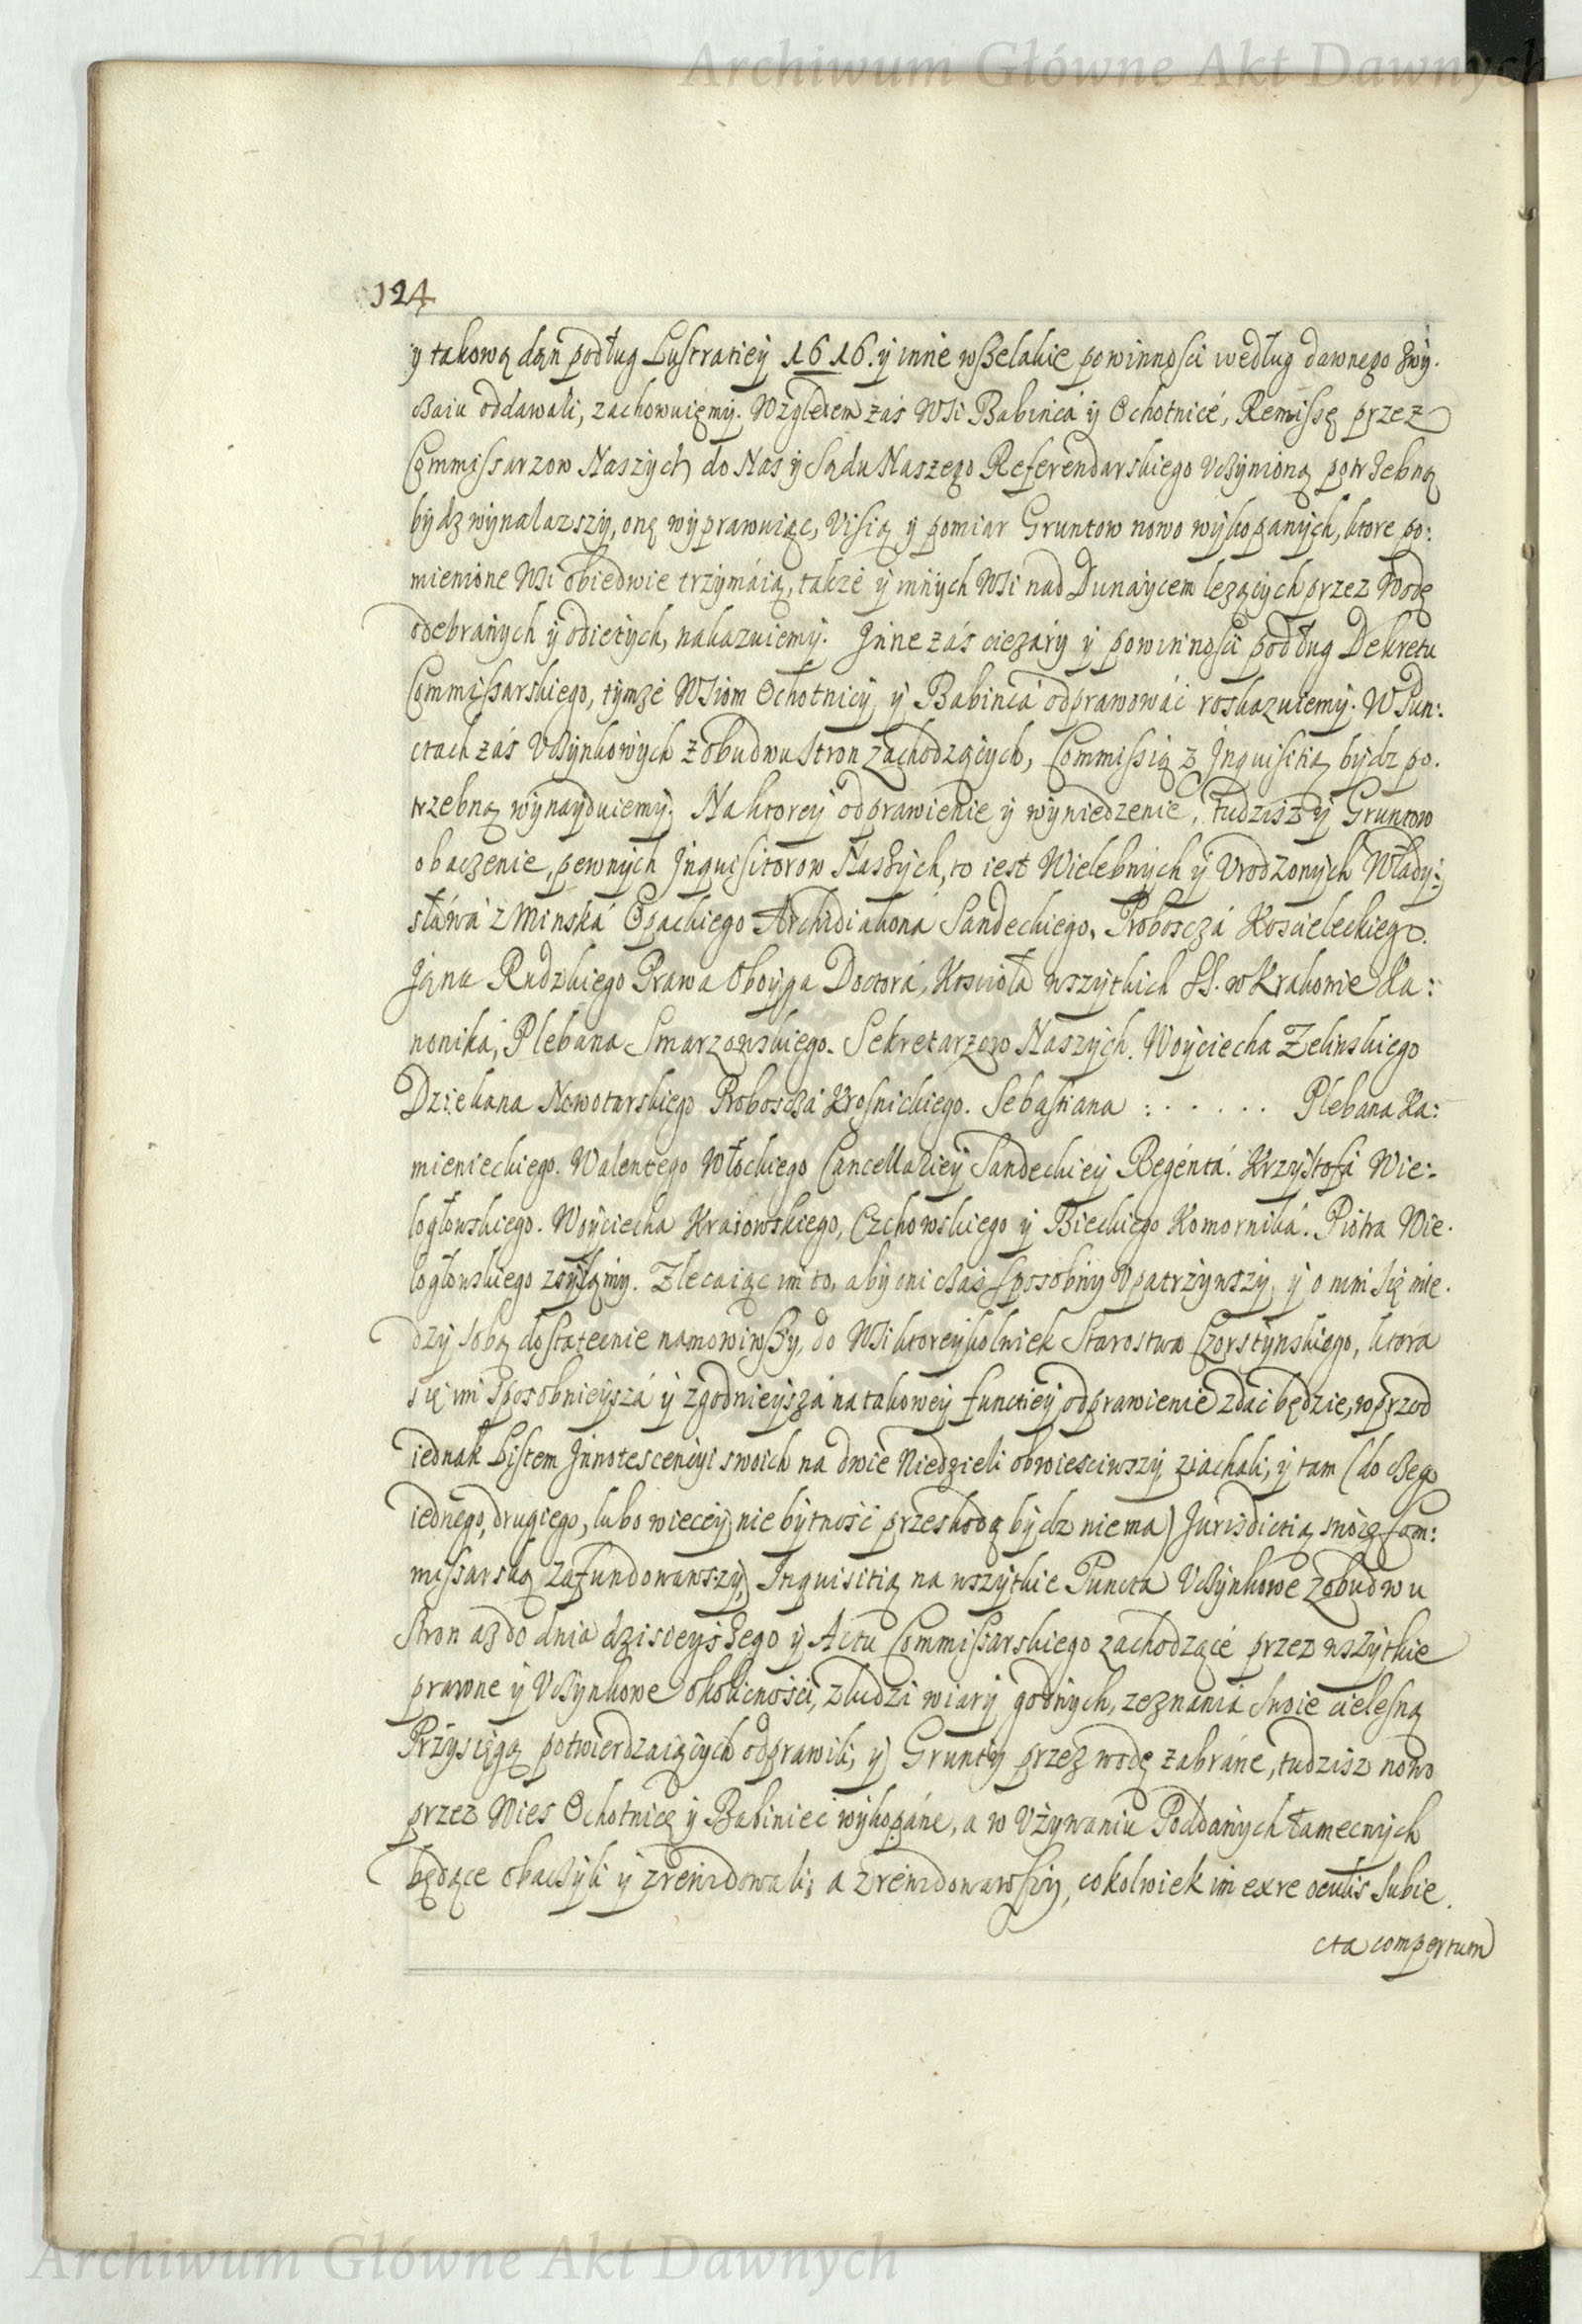 Archiwum Główne Akt Dawnych
124
y takową dań podług Lustratiey 1616. y inne wszelakie powinności według dawnego zwy.
czaiu oddawali, zachowuięmy. Względem zaś Wsi Babińcá y Ochotnicé, Remissę przez
Commissarzow Naszych do Nas y Sądu Naszego Referendarskiego vczynioną potrzebną
bydz wynalazszy, onę wyprawuiąc, Visią y pomiar Gruntow nowo wykopanych, ktore po:
mienione Wsi obiedwie trzymáią, także y innych Wsi nad Dunaycem leżących przez Wodę
odebranych y odiętych, nakazuiemy. Inne zaś cięzary y powinności podług Dekretu
Commissarskiego, tymże Wsiom Ochotnicy y Babińca odprawowáć roskazuiemy. W Pun:
ctach zaś Vczynkowych z obudwu stron zachodzących, Commissią z Inquisitią bydz po.
trzebną wynayduiemy. Na ktorey odprawienie y wywiedzenie, tudzisz y Gruntow
obaczenie, pewnych Inquisitorow Naszych, to iest Wielebnych y Vrodzonych Włady:
sławá z Minská Opackiego Archidiakoná Sandeckiego, Proboszczá Koscieleckiego.
Jana Rudzkiego Prawa Oboyga Doctorá, Kościoła wszytkich SS. w Krakowie Ka:
noniká, Plebana Smarzowskiego. Sekretarzow Naszych. Woyciecha Zelinskiego
Dziekana Nowotarskiego Proboszczá Krosnickiego. Sebastiana : . . . . . Plebana Ka:
mienieckiego. Walentego Włockiego Cancellariey Sandeckiey Regentá. Krzysztofá Wie:
logłowskiego. Woyciecha Kraiowskiego, Czchowskiego y Bieckiego Komorniká. Piotra Wie.
logłowskiego zsyłamy. Zlecaiąc im to, aby oni czas sposobny vpatrzywszy, y o nim się mie.
dzy sobą dostatecnie namowiwszy, do Wsi ktoreykolwiek Starostwa Czorstynskiego, ktora
się im sposobnieyszá y zgodnieyszá na takowey functiey odprawienie zdać będzie, wprzod
iednak Listem Innotescencyi swoich na dwie Niedzieli obwiesciwszy ziachali, y tam (do czego
iednego, drugiego, lubo wiecey niebytność przeszkodą bydz nie ma) Jurisdictią swoię Com:
missarską zafundowawszy, Inquisitią na wszytkie Puncta Vczynkowe z obudwu
stron aż do dnia dzisieyszego y Actu Commissarskiego zachodzącé przez wszytkie
prawne y Vczynkowe okolicności, z ludzi wiary godnych, zeznania swoie cielesną
Przysięgą potwierdzaiących odprawili, y Grunty przez wodę zabráne, tudzisz nowo
przez Wies Ochotnicę y Babiniec wykopáne, a w Vżywaniu Poddanych tamecnych
będące obaczyli y zrewidowali; a zrewidowawszy, cokolwiek im ex re oculis subie.
cta compertum
Archiwum Główne Akt Dawnych